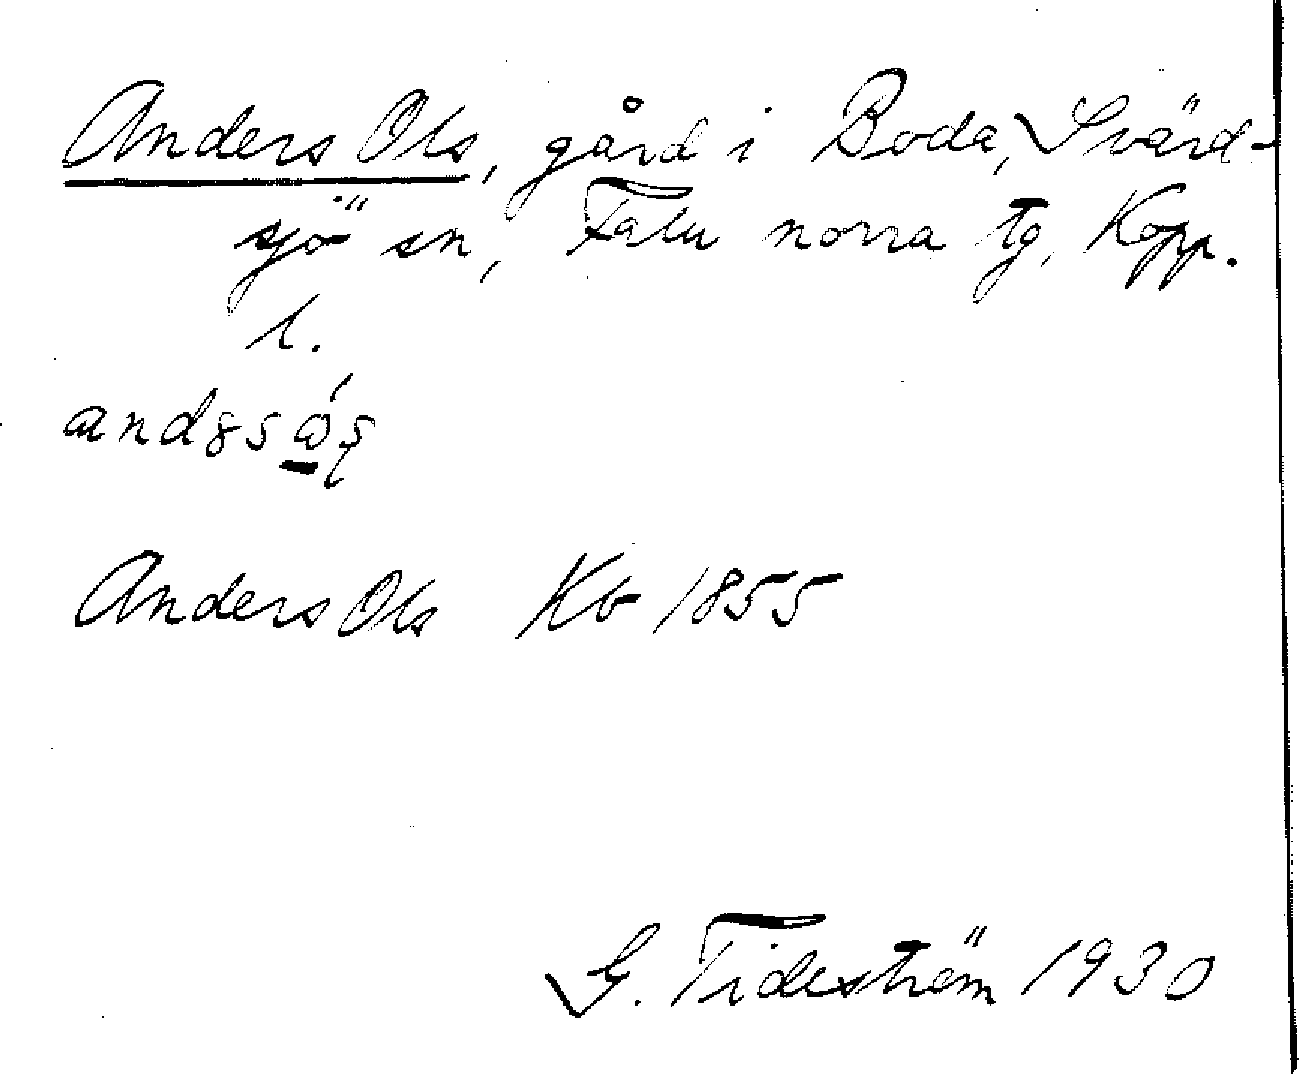 Anders Ols, gård i Boda, Svärd-
sjö sn, Falu norra tg, Kopp.
l.
Anders Ols Kb 1855
G. Tideström 1930